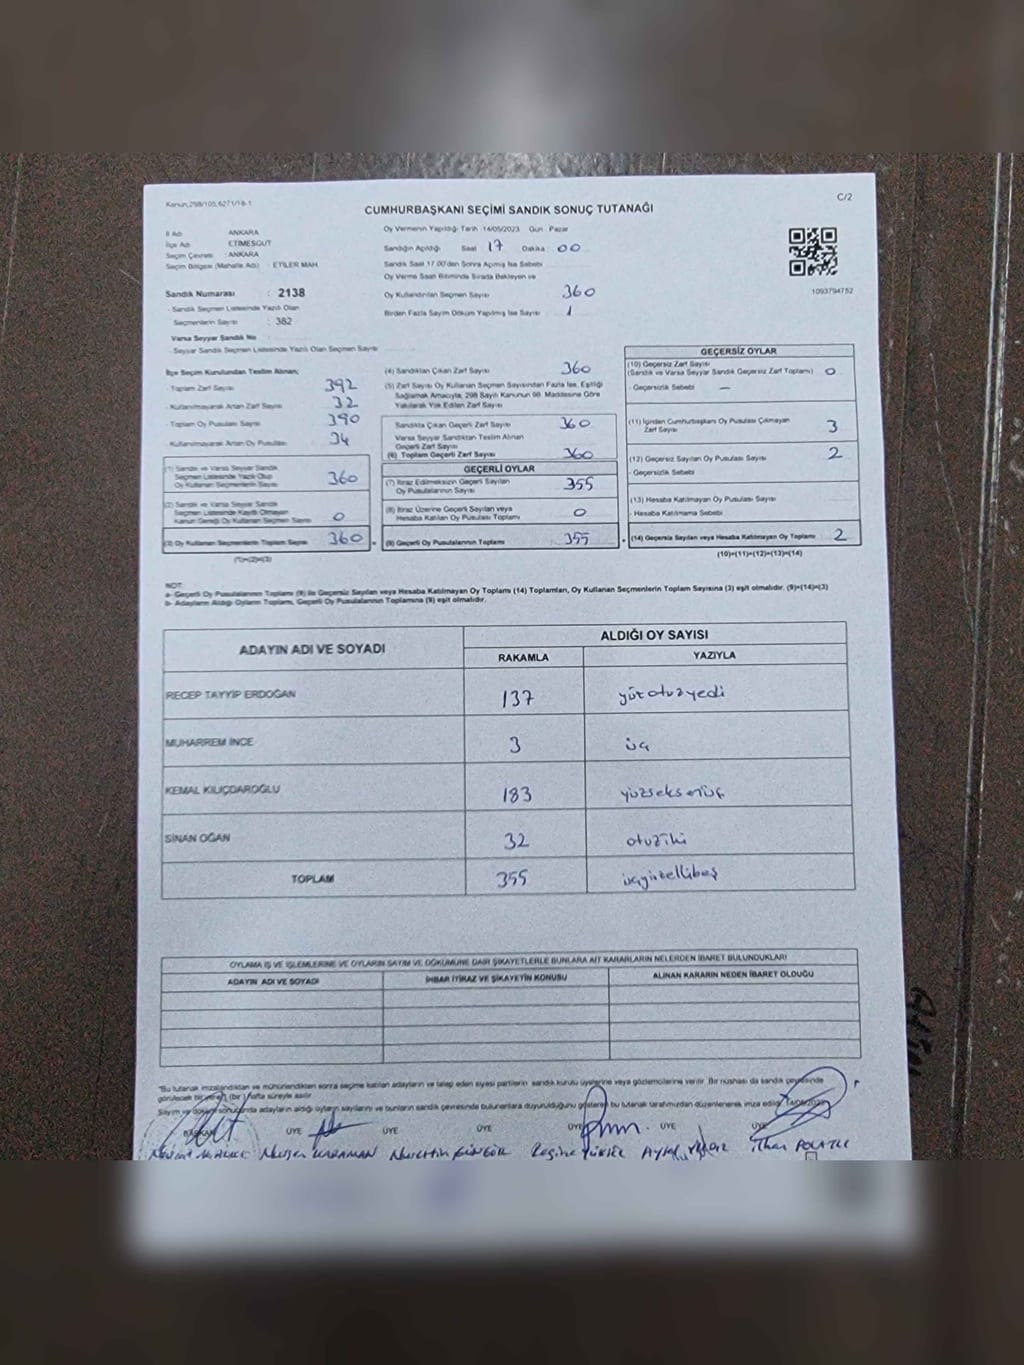 Kanun:298/105,6271/18-1
C/2
CUMHURBAŞKANI SEÇİMİ SANDIK SONUÇ TUTANAĞI
İl Adı : ANKARA
İlçe Adı : ETİMESGUT
Seçim Çevresi : ANKARA
Seçim Bölgesi (Mahalle Adı) : ETİLER MAH.
Sandık Numarası : 2138
- Sandık Seçmen Listesinde Yazılı Olan
Seçmenlerin Sayısı : 382
Varsa Seyyar Sandık No :
- Seyyar Sandık Seçmen Listesinde Yazılı Olan Seçmen Sayısı
Oy Vermenin Yapıldığı Tarih :14/05/2023 Gün : Pazar
Sandığın Açıldığı Saat 17 Dakika 00
Sandık Saat 17.00'den Sonra Açılmış İse Sebebi
Oy Verme Saati Bitiminde Sırada Bekleyen ve
Oy Kullandırılan Seçmen Sayısı 360
Birden Fazla Sayım Döküm Yapılmış İse Sayısı 1
1093794752
İlçe Seçim Kurulundan Teslim Alınan;
- Toplam Zarf Sayısı 392
- Kullanılmayarak Artan Zarf Sayısı 32
- Toplam Oy Pusulası Sayısı 390
- Kullanılmayarak Artan Oy Pusulası 34
(1) Sandık ve Varsa Seyyar Sandık
Seçmen Listesinde Yazılı Olup
Oy Kullanan Seçmenlerin Sayısı 360
(2) Sandık ve Varsa Seyyar Sandık
Seçmen Listesinde Kayıtlı Olmayan
Kanun Gereği Oy Kullanan Seçmen Sayısı 0
(3) Oy Kullanan Seçmenlerin Toplam Sayısı 360
(1)+(2)=(3)
(4) Sandıktan Çıkan Zarf Sayısı 360
(5) Zarf Sayısı Oy Kullanan Seçmen Sayısından Fazla İse, Eşitliği
Sağlamak Amacıyla, 298 Sayılı Kanunun 98. Maddesine Göre
Yakılarak Yok Edilen Zarf Sayısı
Sandıkta Çıkan Geçerli Zarf Sayısı 360
Varsa Seyyar Sandıktan Teslim Alınan
Geçerli Zarf Sayısı
(6) Toplam Geçerli Zarf Sayısı 360
GEÇERLİ OYLAR
(7) İtiraz Edilmeksizin Geçerli Sayılan
Oy Pusulalarının Sayısı 355
(8) İtiraz Üzerine Geçerli Sayılan veya
Hesaba Katılan Oy Pusulası Toplamı 0
(9) Geçerli Oy Pusulalarının Toplamı 355
GEÇERSİZ OYLAR
(10) Geçersiz Zarf Sayısı
(Sandık ve Varsa Seyyar Sandık Geçersiz Zarf Toplamı) 0
- Geçersizlik Sebebi —
(11) İçinden Cumhurbaşkanı Oy Pusulası Çıkmayan
Zarf Sayısı 3
(12) Geçersiz Sayılan Oy Pusulası Sayısı 2
- Geçersizlik Sebebi
(13) Hesaba Katılmayan Oy Pusulası Sayısı
- Hesaba Katılmama Sebebi
(14) Geçersiz Sayılan veya Hesaba Katılmayan Oy Toplamı 2
(10)+(11)+(12)+(13)=(14)
NOT:
a- Geçerli Oy Pusulalarının Toplamı (9) ile Geçersiz Sayılan veya Hesaba Katılmayan Oy Toplamı (14) Toplamları, Oy Kullanan Seçmenlerin Toplam Sayısına (3) eşit olmalıdır. (9)+(14)=(3)
b- Adayların Aldığı Oyların Toplamı, Geçerli Oy Pusulalarının Toplamına (9) eşit olmalıdır.
ADAYIN ADI VE SOYADI ALDIĞI OY SAYISI
RAKAMLA YAZIYLA
RECEP TAYYİP ERDOĞAN 137 yüzotuzyedi
MUHARREM İNCE 3 üç
KEMAL KILIÇDAROĞLU 183 yüzseksenüç
SİNAN OĞAN 32 otuziki
TOPLAM 355 üçyüzellibeş
OYLAMA İŞ VE İŞLEMLERİNE VE OYLARIN SAYIM VE DÖKÜMÜNE DAİR ŞİKAYETLERLE BUNLARA AİT KARARLARIN NELERDEN İBARET BULUNDUKLARI
ADAYIN ADI VE SOYADI İHBAR İTİRAZ VE ŞİKAYETİN KONUSU ALINAN KARARIN NEDEN İBARET OLDUĞU
"Bu tutanak imzalandıktan ve mühürlendikten sonra seçime katılan adayların ve talep eden siyasi partilerin sandık kurulu üyelerine veya gözlemcilerine verilir. Bir nüshası da sandık çevresinde
görülecek bir yere (bir) hafta süreyle asılır
Sayım ve döküm sonucunda adayların aldığı oyların sayılarını ve bunların sandık çevresinde bulunanlara duyurulduğunu gösteren bu tutanak tarafımızdan düzenlenerek imza edildi. 14/05/2023
BAŞKAN ÜYE ÜYE ÜYE ÜYE ÜYE ÜYE
Nurşen KARAMAN Nurettin GÜNGÖR İlhan POLATLI